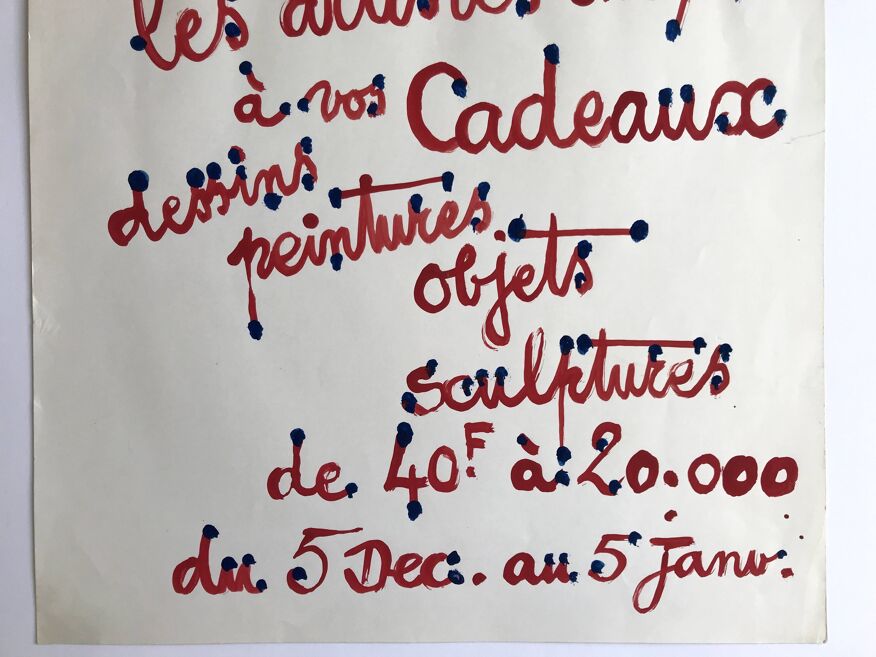 les
à vos Cadeaux
dessins
peintures.
objets
sculptures
de 40F à 20.000
du 5 Dec. au 5 janv.